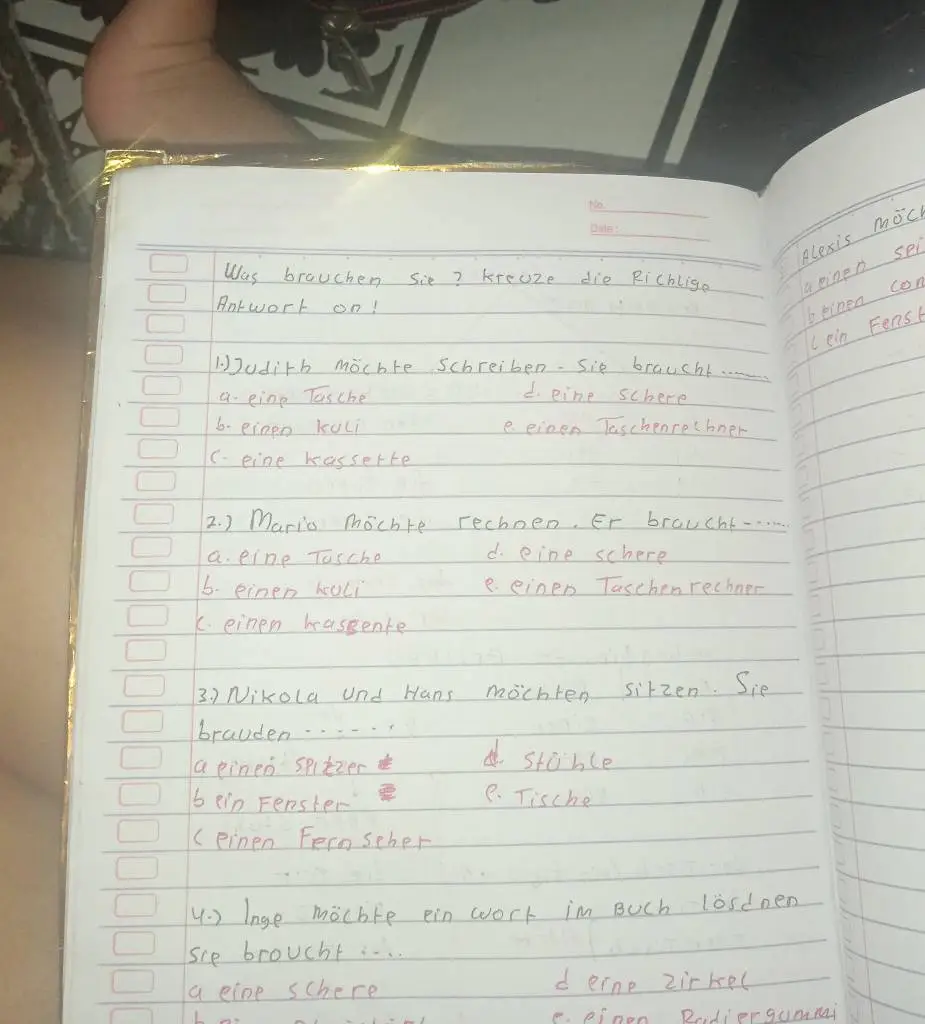 No.
Date:
Was brauchen Sie ? kreuze die Richlige
Antwort on !
1.) Judith möchte Schreiben - Sie braucht ......
a. eine Tasche d. eine schere
b. einen kuli e. einen Taschenrechner
c. eine kassette
2.) Mario möchte rechnen. Er braucht ......
a. eine Tasche d. eine schere
b. einen kuli e. einen Taschenrechner
c. einen
3.) Nikola und Hans möchten sitzen. Sie
brauden ......
a einen Spitzer d Stühle
b ein Fenster e. Tische
c einen Fernseher
4.) Inge möchte ein wort im Buch lösdnen
sie broucht ....
a eine schere d eine zirkel
e. einen Radiergummi
Alexis möch
a einen spi
b einen con
c ein Fenst